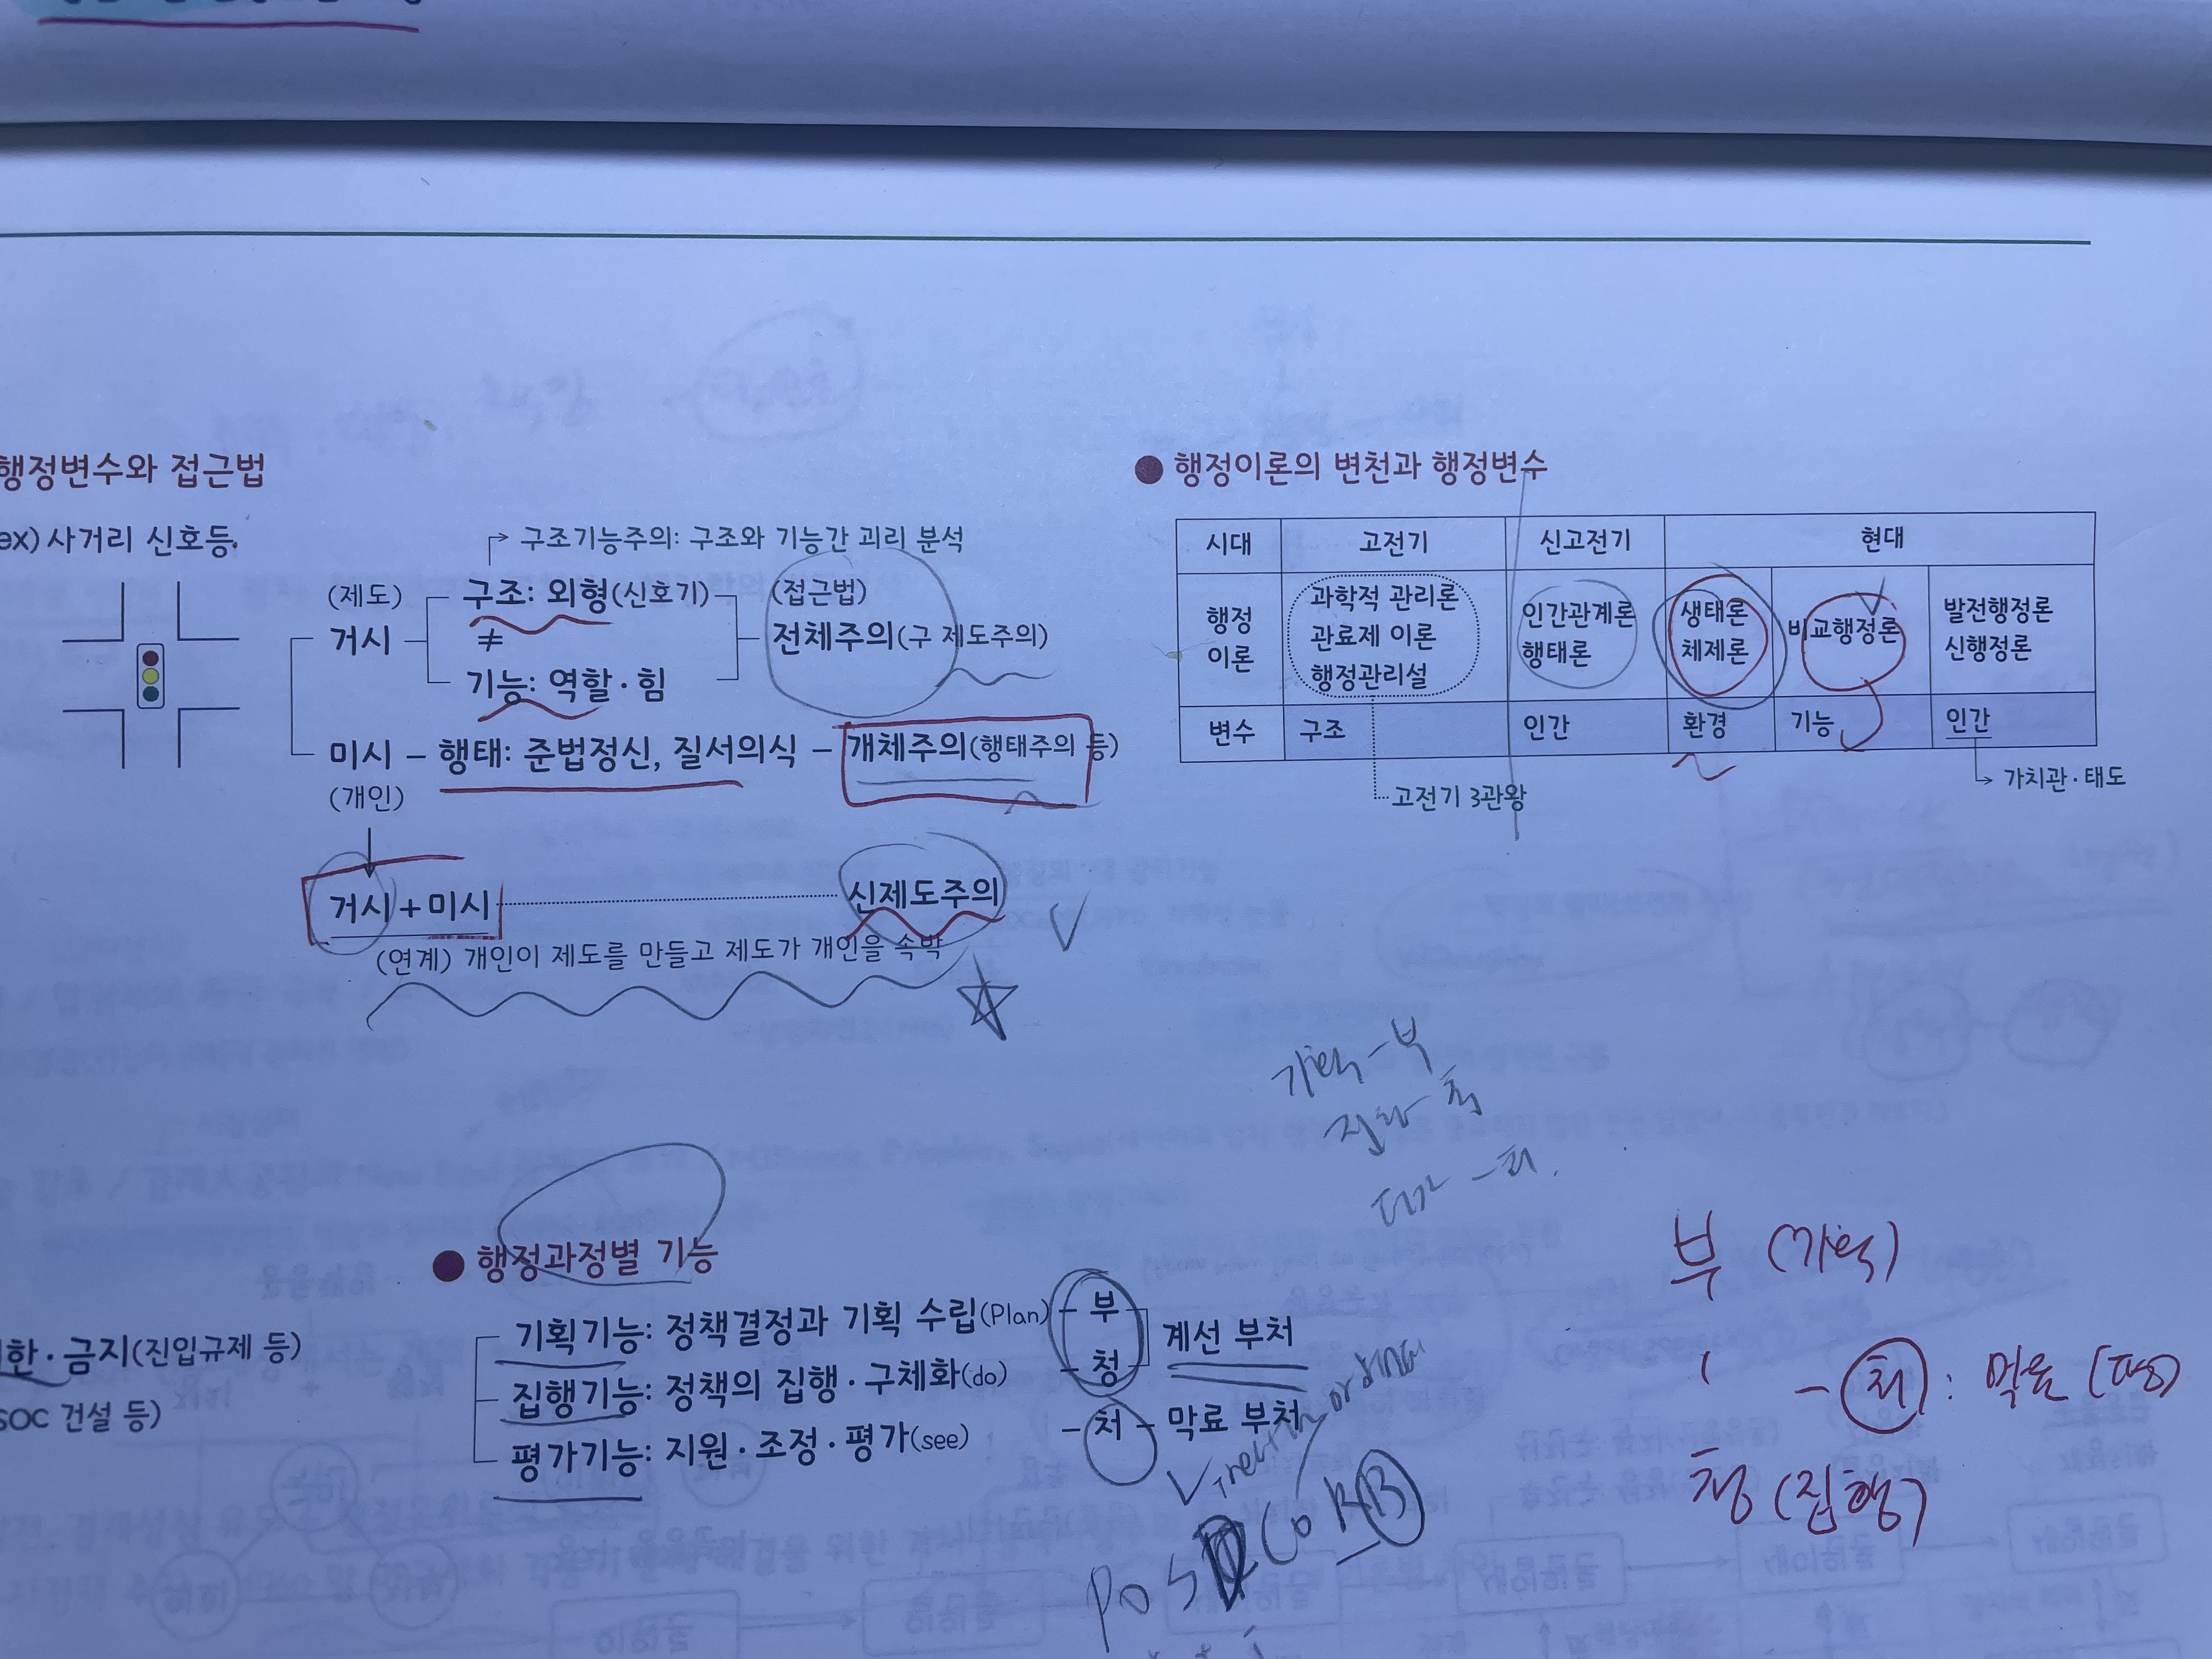 행정변수와 접근법
ex) 사거리 신호등
구조기능주의: 구조와 기능간 괴리 분석
(제도)
거시
구조: 외형(신호기)
≠
기능: 역할·힘
(접근법)
전체주의(구 제도주의)
미시 – 행태: 준법정신, 질서의식 – 개체주의(행태주의 등)
(개인)
거시+미시 신제도주의
(연계) 개인이 제도를 만들고 제도가 개인을 속박
● 행정이론의 변천과 행정변수
시대 고전기 신고전기 현대
행정 이론
과학적 관리론
관료제 이론
행정관리설
인간관계론
행태론
생태론
체제론
비교행정론
발전행정론
신행정론
변수 구조 인간 환경 기능 인간
고전기 3관왕
가치관·태도
기획 – 부
집행 청
평가 – 처
● 행정과정별 기능
기획기능: 정책결정과 기획 수립(Plan) – 부
집행기능: 정책의 집행·구체화(do) – 청
계선 부처
평가기능: 지원·조정·평가(see) – 처 – 막료 부처
한·금지(진입규제 등)
SOC 건설 등)
부 (기획)
– 처 : 막료 (평)
청 (집행)
POSDCoRB